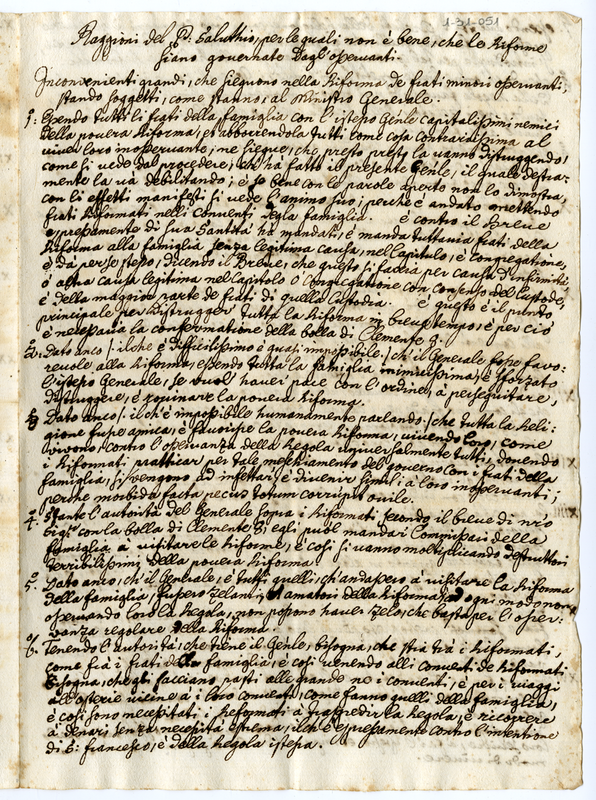 1-31-051
Raggioni del P. Saluthio, per le quali non è bene, che le Riforme
siano governate dagl'osservanti.
Inconvenienti grandi, che sieguono nella Riforma de frati minori osservanti,
stando soggetti, come stanno, al Ministro Generale.
1: Essendo tutti li frati della famiglia con l'istesso Gen̄le capitalissimi nemici
della povera Riforma, et abborrendola tutti come cosa contrarissima al
viver loro inosservante, ne siegue, che presto presto la vanno distruggendo,
come si vede dal procedere, ch'ha fatto il presente Gen̄le, il quale destra-
mente la và debilitando; e se bene con le parole aperto non lo dimostra,
con li effetti manifesti si vede l'animo suo; perche è andato mettendo
frati Riformati nelli conventi della famiglia. e contro il Breve
espressamente di Sua Santità ha mandati, e manda tuttavia frati della
Riforma alla famiglia senza legitima causa, nel capitulo, è congregatione,
è da per se stesso, dicendo il Breve, che questo si faccia per causa d'infirmità,
ò altra causa legitima nel Capitolo ò Congregatione con consenso del Custode,
è della maggior parte de frati di quella Custodia. è questo è il punto
principale per distrugger tutta la Riforma in breve tempo, è per ciò
è necessaria la confirmatione della bolla di Clemente 8.
2. Dato anco /: il che è difficilissimo è quasi impossibile :/ ch'il Generale fosse favo-
revole alla Riforma, essendo tutta la famiglia inimicissima, è sforzato
l'istesso Generale, se vuol haver pace con l'ordine, à perseguitare,
distruggere, è roquinare la povera Riforma.
3 Dato anco /: il ch'è impossibile humanamente parlando :/ che tutta la Reli-
gione fusse amica, è favorisse la povera Riforma, vivendo loro, come
vivono, contro l'osservanza della Regola universalmente tutti, dovendo
i Riformati pratticar per tale meschiamento del governo con i frati della
famiglia, si vengono ad infettar, è divenir simili à loro inosservanti;
perche morbida facta pecus totum corrupit ovile.
4. Stante l'autorità del Generale sopra i Riformati secondo il breve di n̄ro
Sig.re con la bolla di Clemente 8. egli puol mandar Commissari della
famiglia à visitare le Riforme, è così si vanno moltiplicando destruttori
terribilissimi della povera Riforma.
5. Dato anco, ch'il Generale, è tutti quelli, ch'andassero à visitare la Riforma
della famiglia, fussero zelanti, et amatori della Riforma, ad ogni modo non
osservando loro la Regola, non possono haver zelo, che basta per l'osser-
vanza regolare della Riforma.
6. Tenendo l'autorità, che tiene il Gen̄le, bisogna, che stia trà i Riformati,
come frà i frati della famiglia, è così venendo alli conventi de Riformati
bisogna, che gli facciano pasti alla grande ne i conventi, è per i viaggi
all'osterie vicine à i loro conventi, come fanno quelli della famiglia,
è così sono necessitati i Reformati à trasgredir la Regola, è ricorrere
à denari senza necessità estrema, il ch'è espressamente contro l'intentione
di S. Francesco, è della Regola istessa.